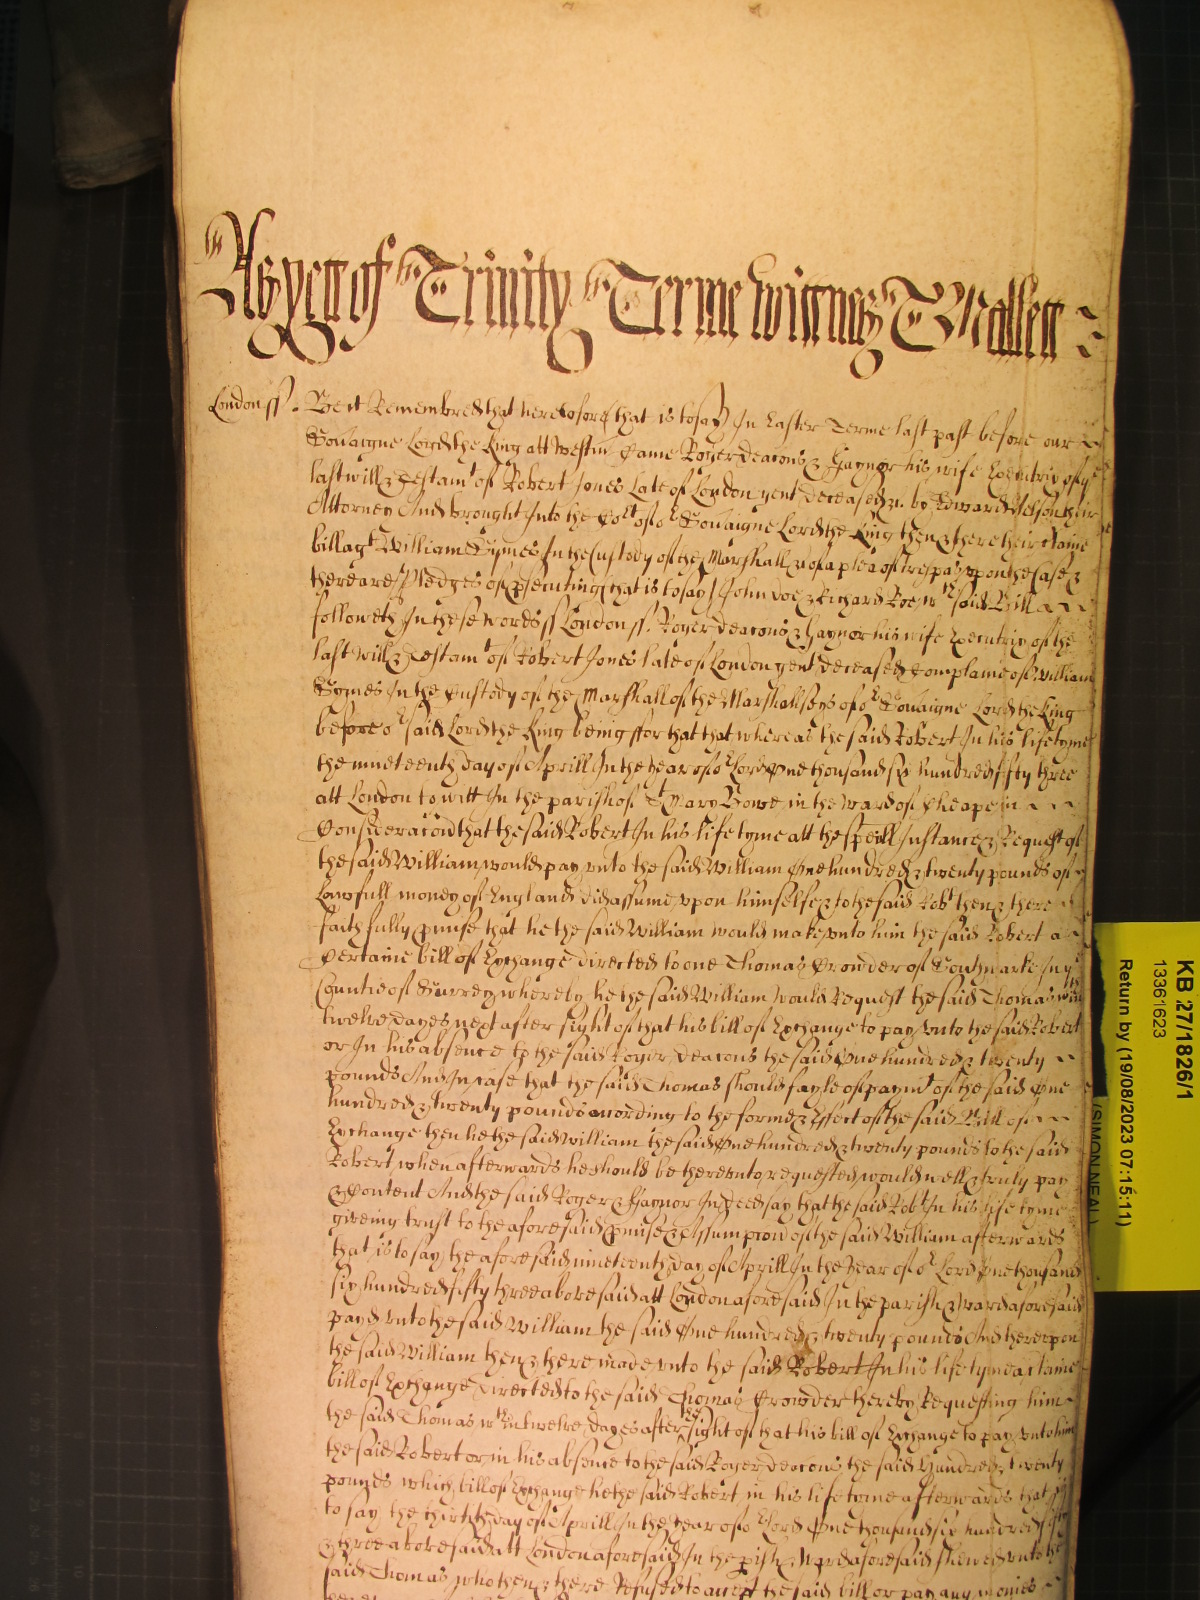 As yett of Trinity Terme wittnes T Mallett
London ss. Be it Remembred that heretofore (that is to say) In Easter Terme last past before our
Souaigne Lord the King att Westm Came Roger deacons & Gaynor his wife Executrix of ye
last will & Testamt of Robert Jones Late of London gent deceased by Edward their
Attorney And brought Into the Cort of or Souaigne Lord the King then & there their Certaine
bill agt William Symes In the Custody of the Marshall &c of a plea of trespas vpon the Case &
there are Pledges of psecuting (that is to say) John doe & Richard Roe wch said Bill
followeth In these words ss London ss. Roger deacons & Gaynor his wife Executrix of the
last will & Testamt of Robert Jones late of London gent deceased Complaine of William
Symes In the Custody of the Marshall of the Marshallseys of or Souaigne Lord the King
before or said Lord the King being ffor that that whereas the said Robert In his life tyme
the nineteenth day of Aprill In the year of or Lord One thousand six hundred fifty three
att London to witt In the parish of St Mary Bowe in the Ward of Cheape in
Consideracion that the said Robert In his life tyme att the speciall Instance & Request of
the said William would pay vnto the said William One hundred & twenty pounds of
Lawfull money of England did assume vpon himselfe & to the said Robt then & there
faithfully pmise that he the said William would make vnto him the said Robert a
Certaine bill of Exchange directed to one Thomas Crowder of Southwarke In ye
Countie of Surrey whereby he the said William would Request the said Thomas wthin
twelve dayes next after sight of that his bill of Exchange to pay vnto the said Robert
or In his absence to the said Roger deacons the said One hundred & twenty
pounds And In case that the said Thomas should fayle of paymt of the said One
hundred & twenty pounds according to the forme & Effect of the said Bill of
Exchange then he the said William the said One hundred & twenty pounds to the said
Robert when afterwards he should be therevnto requested would well & truly pay
& Content And the said Roger & Gaynor In deed say that the said Robt In his life tyme
giveing trust to the aforesaid pmise & Assumpcion of the said William afterwards
that is to say the aforesaid nineteenth day of Aprill In the year of or Lord One thousand
six hundred fifty three abovesaid att London aforesaid In the parish & Ward aforesaid
payd vnto the said William the said One hundred & twenty pounds And therevpon
the said William then & there made vnto the said Robert In his life tyme a Certaine
bill of Exchange directed to the said Thomas Crowder thereby Requesting him
the said Thomas wthin twelve dayes after the sight of that his bill of Exchange to pay vnto him
the said Robert or in his absence to the said Roger deacons the said Hundred & twenty
pounds which bill of Exchange he the said Robert in his life tyme afterwards that is
to say the thirtith day of Aprill In the year of or Lord One thousand six hundred fifty
& three abovesaid att London aforesaid In the pish & Ward aforesaid shewed vnto the
said Thomas who then & there Refused to accept the said bill or pay any monies
KB 27/1826/1
13361623
Return by (19/08/2023 07:15:11)
(SIMON NEAL)